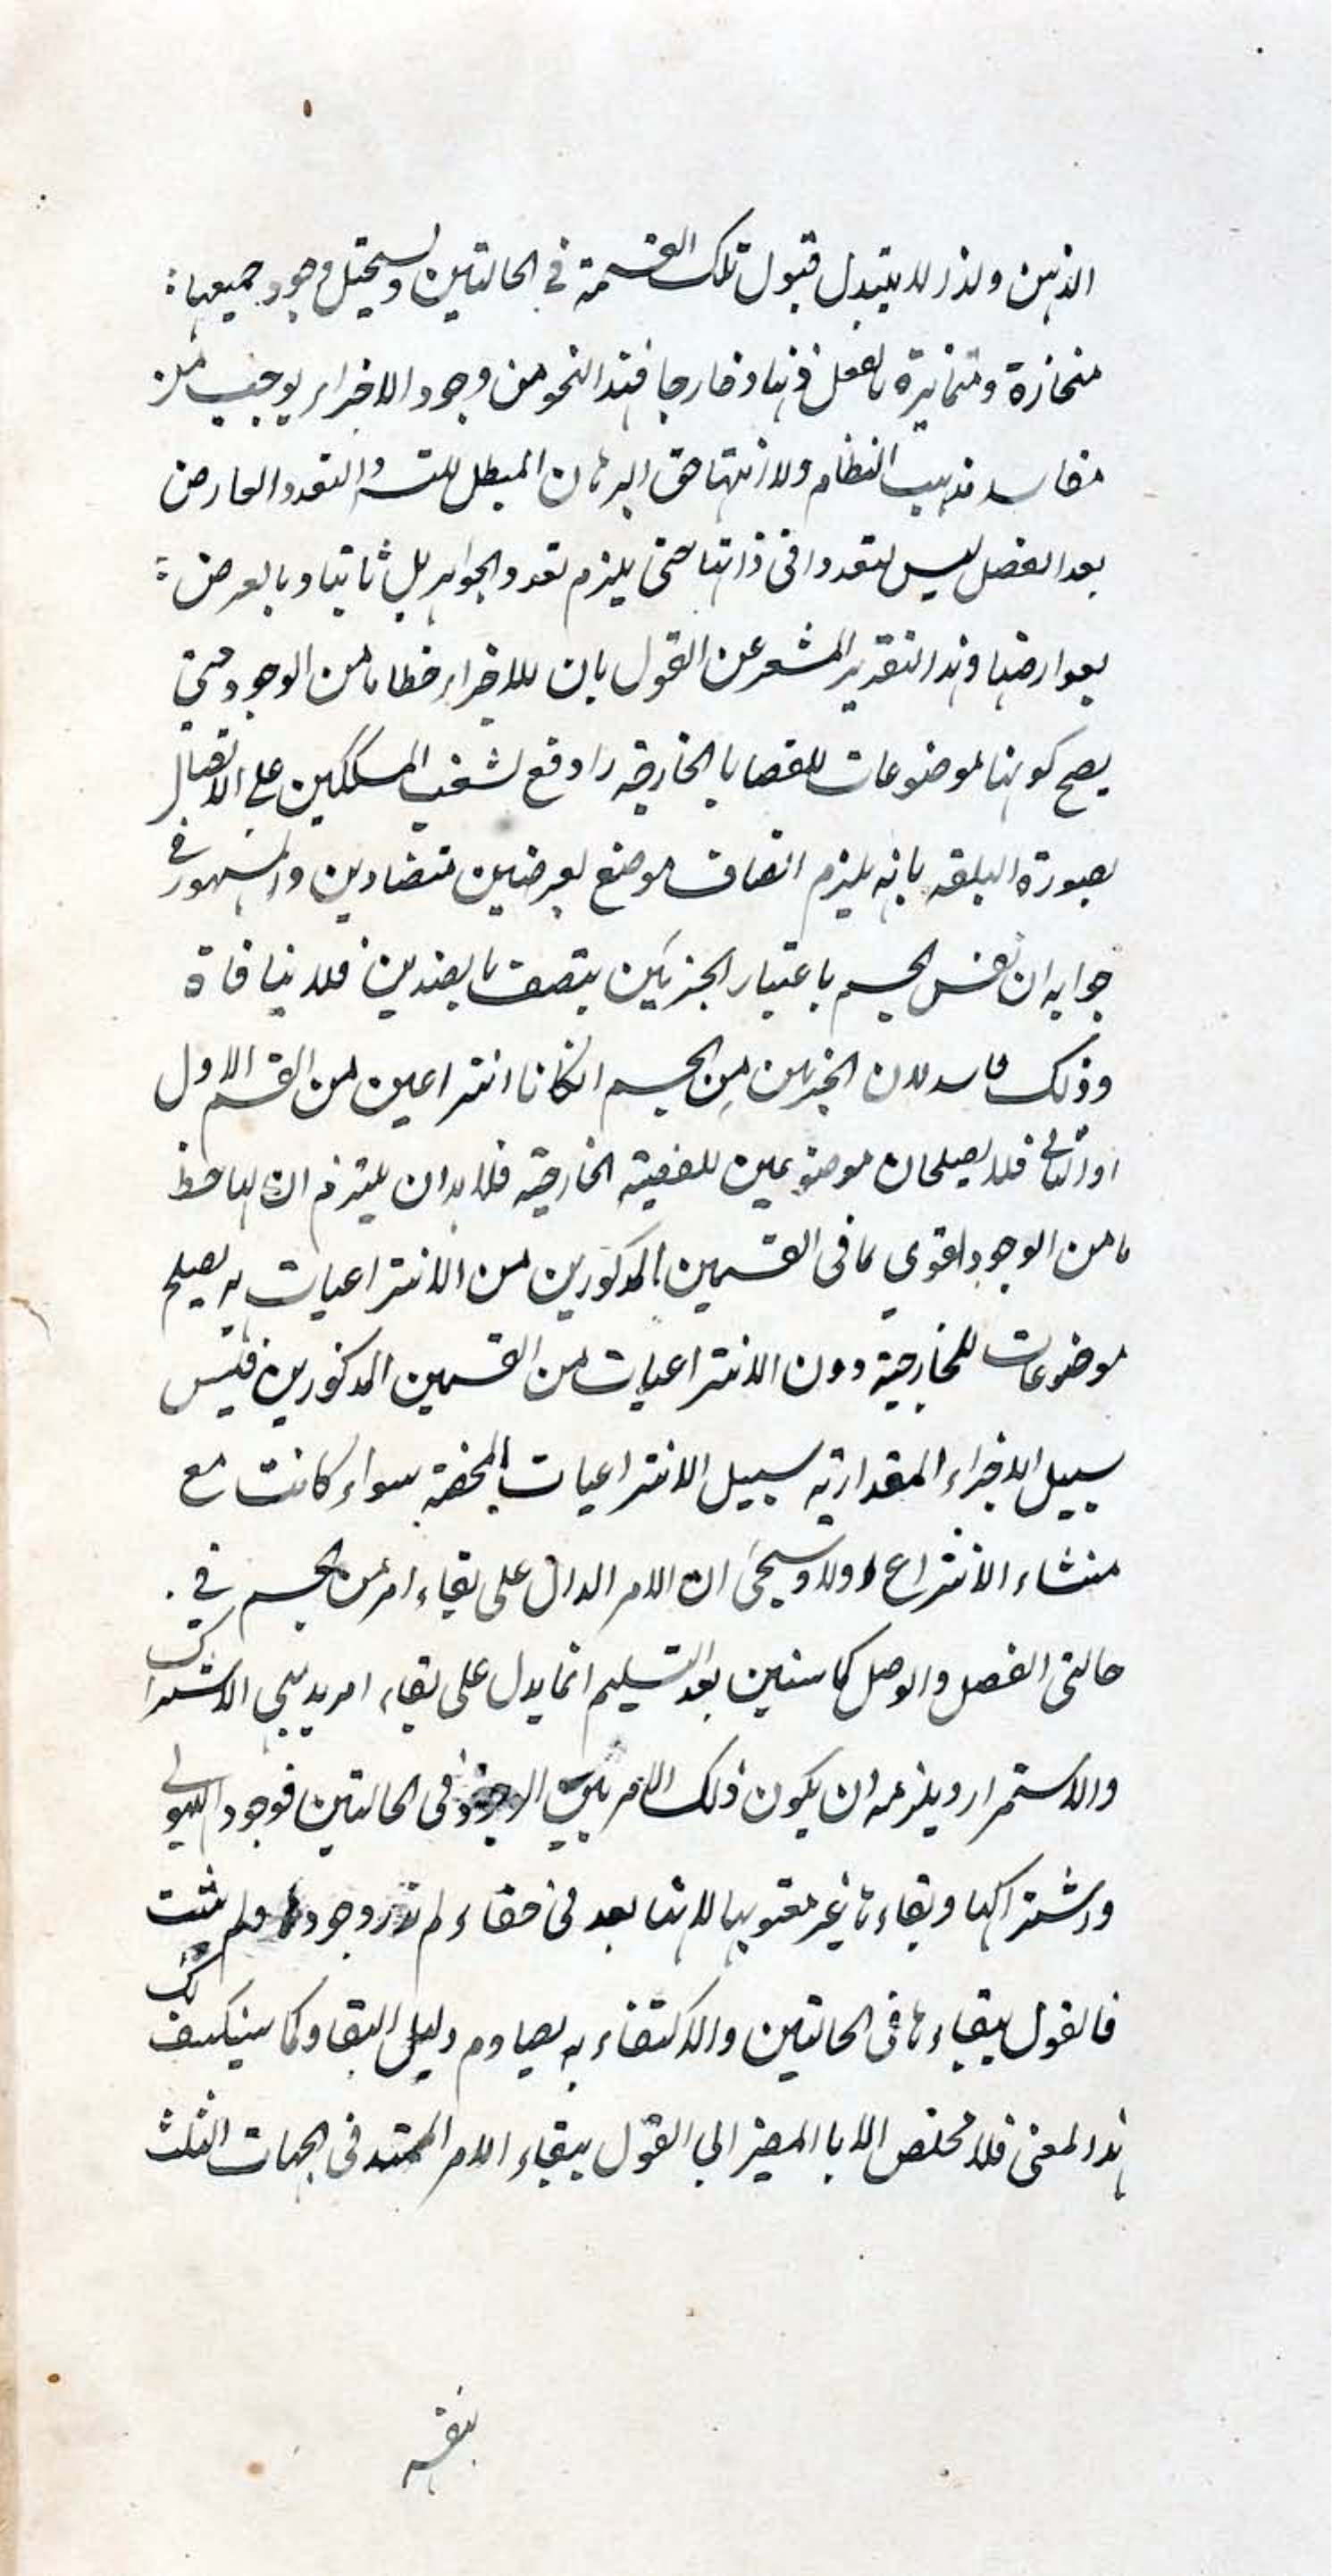 الذهن ولذا لا يتبدل قبول تلك القسمة في الحالتين ويستحيل وجود جميعها
منحازة ومتمايزة بالفعل ذهنا وخارجا فهذا النحو من وجود الاجزاء يوجب من
مفاسد مذهب النظام ولا انتهاض البرهان المبطل للتسـ والتعدد العارض
بعد الفصل ليس تعددا في ذاتها حتى يلزم تعدد الجواهر بل ثانيا وبالعرض
بعوارضها وهذا التقدير المشعر عن القول بان للاجزاء حظا ما من الوجود حتى
يصح كونها موضوعات للقضايا الخارجية دافع لشغب المشككين على الاتصال
بصورة البلقة بانه يلزم اتصاف موضع بعرضين متضادين والمشهور في
جوابه ان نفس الجسم باعتبار الجزئين يتصف بالضدين فلا منافاة
وذلك فاسد لان الجزئين من الجسم انكانا انتزاعين من القسم الاول
او الثاني فلا يصلحان موضوعين للقضية الخارجية فلا بد ان يلتزم ان لها حظ
ما من الوجود اقوى مما في القسمين المذكورين من الانتزاعيات به يصلح
موضوعات للخارجية دون الانتزاعيات من القسمين المذكورين فليس
سبيل الاجزاء المقدارية سبيل الانتزاعيات المحضة سواء كانت مع
منشاء الانتزاع اولا وسيجئ ان الامر الدال على بقاء امر من الجسم في
حالتي الفصل والوصل كما سنبين بعد التسليم انما يدل على بقاء امر بديهي الاشتراك
والاستمرار ويلزمه ان يكون ذلك الامر بين الوجود في الحالتين فوجود الهيولى
واشتراكها وبقاءها غير معتو بها لانها بعد في خفاء لم ندر وجودها ولم يثبت
فالقول ببقاءها في الحالتين والاكتفاء به يصادم دليل البقاء كما سينكشف لك
هذا المعنى فلا مخلص الا بالمصير الى القول ببقاء الامر الممتد في الجهات الثلث
بنفسه